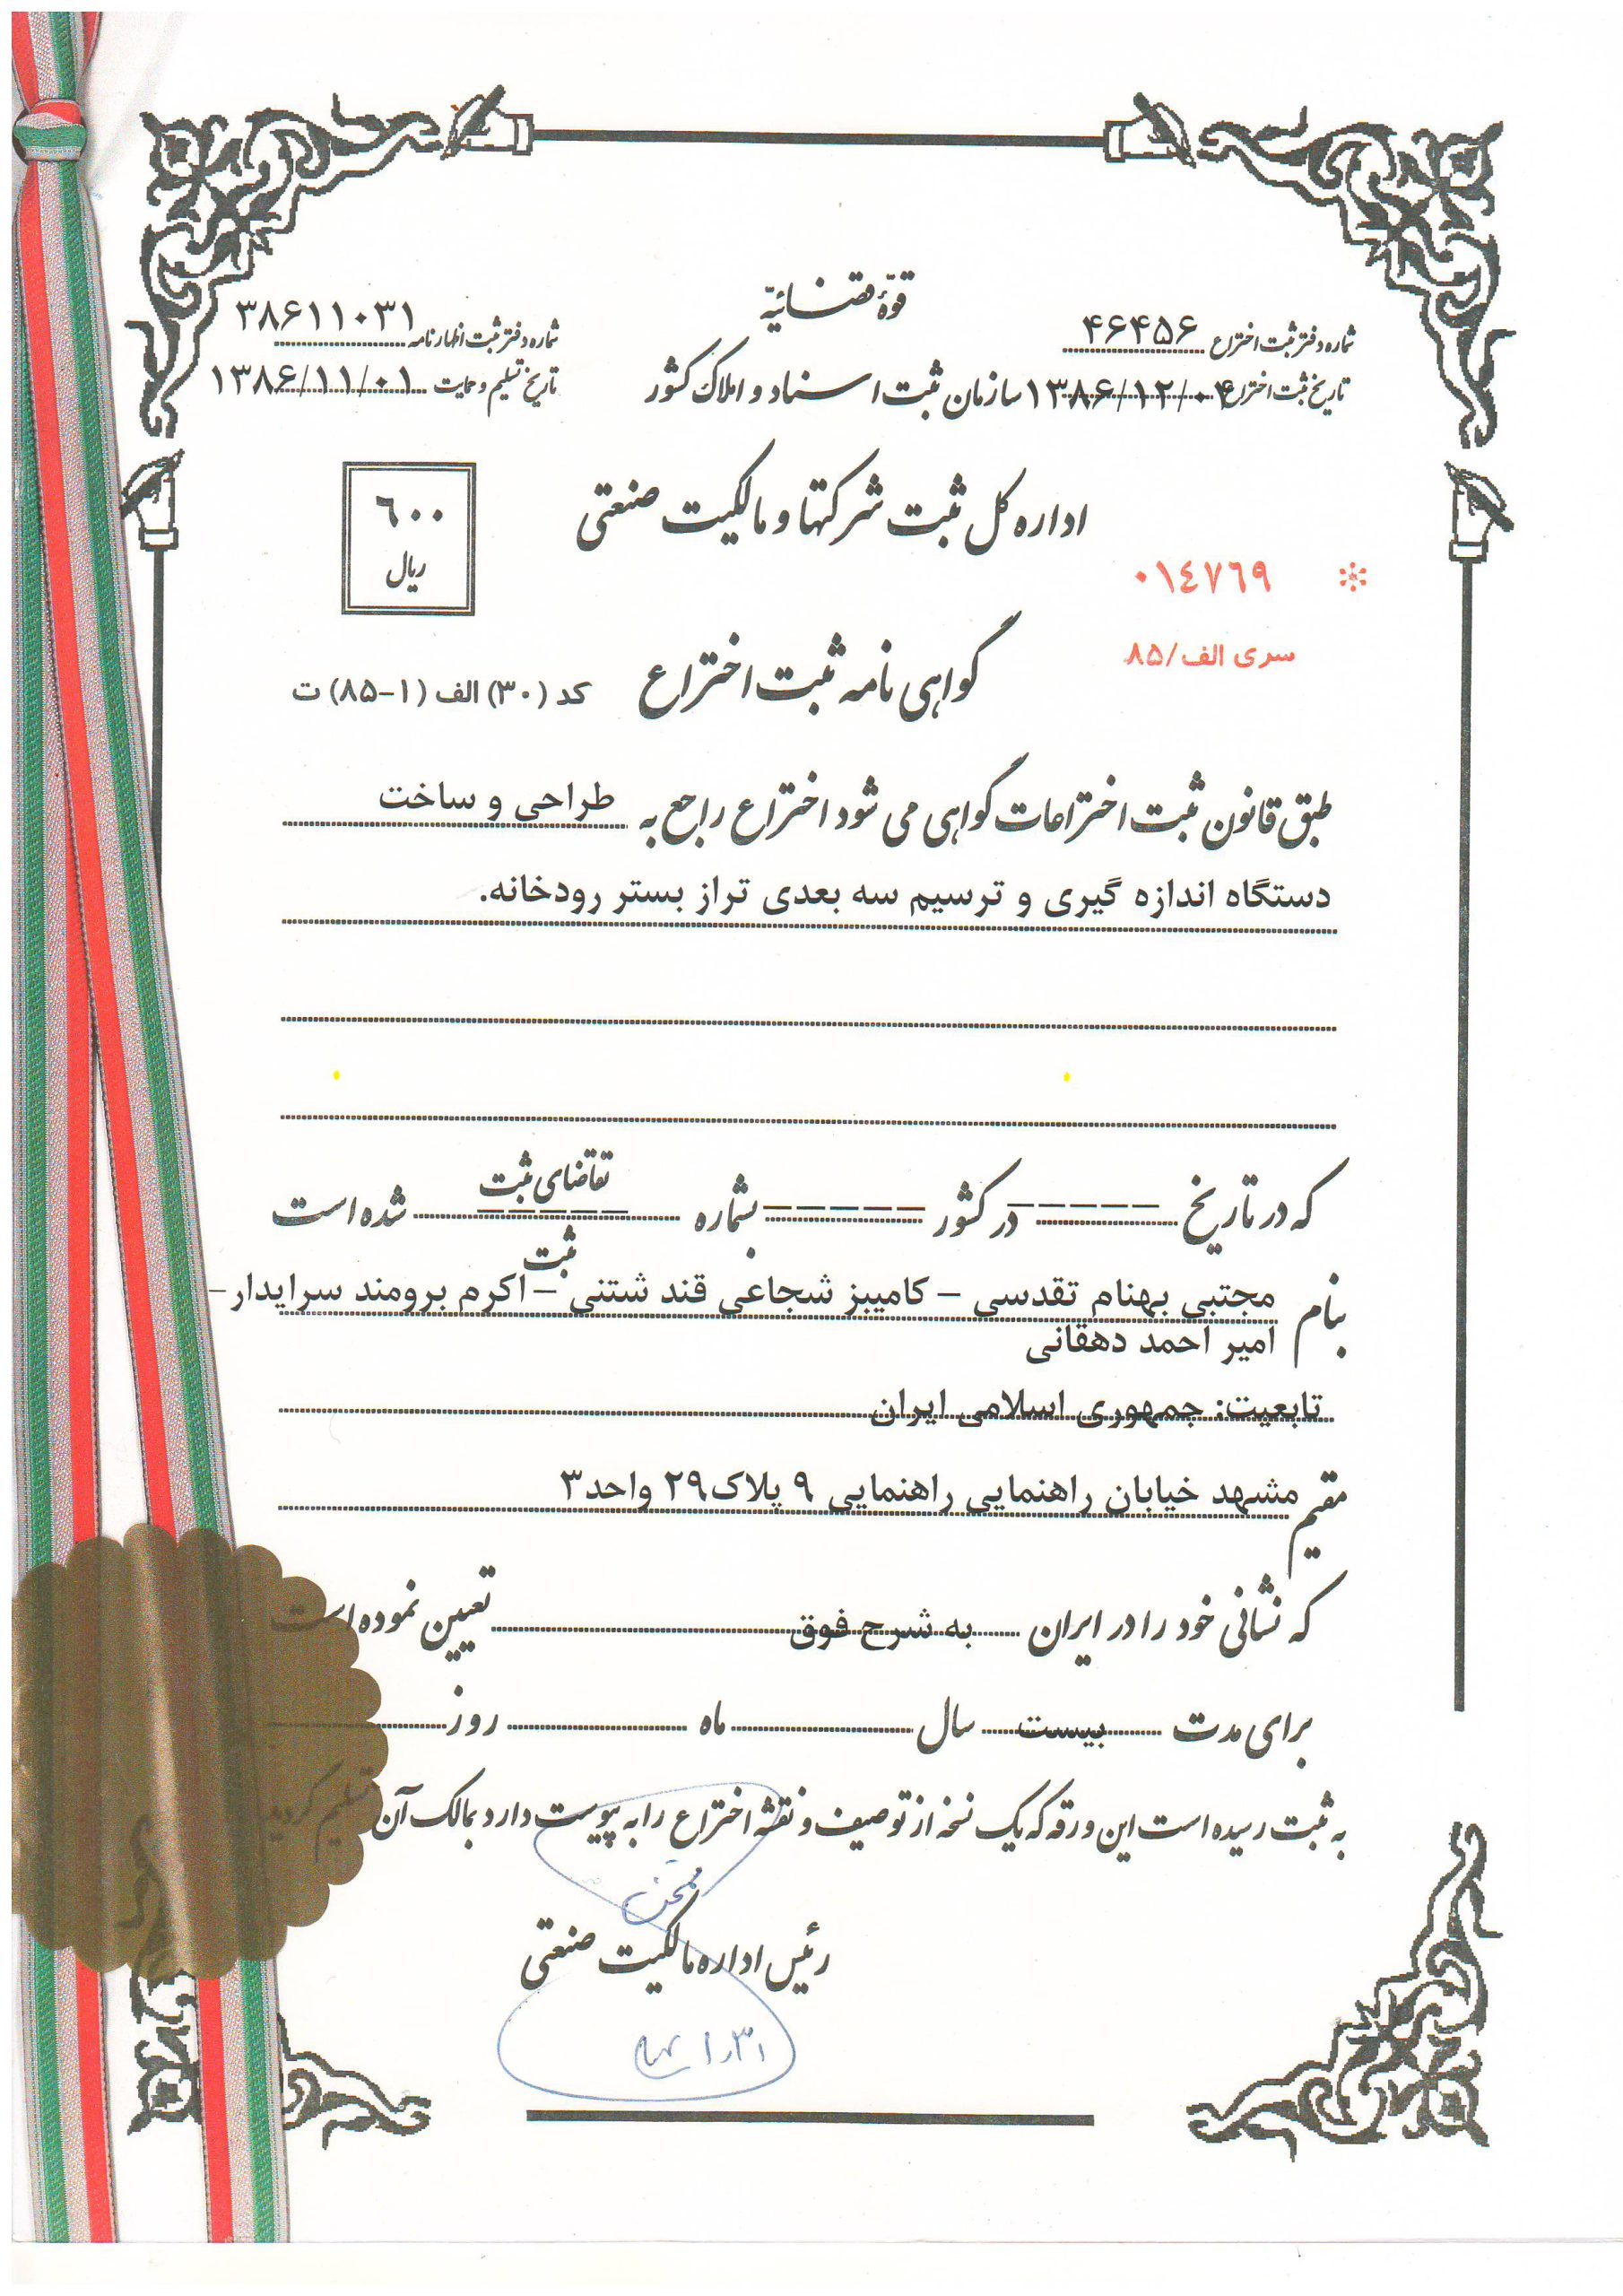 قوّهٔ قضائیّه
شماره دفتر ثبت اختراع ۴۶۴۵۶
شماره دفتر ثبت اظهارنامه ۳۸۶۱۱۰۳۱
تاریخ ثبت اختراع ۱۳۸۶/۱۲/۰۴
سازمان ثبت اسناد و املاک کشور
تاریخ تسلیم و حمایت ۱۳۸۶/۱۱/۰۱
اداره کل ثبت شرکتها و مالکیت صنعتی
۶۰۰
ریال
۰۱٤۷٦۹
سری الف/۸۵
گواهی نامه ثبت اختراع
کد (۳۰) الف (۱-۸۵) ت
طبق قانون ثبت اختراعات گواهی می شود اختراع راجع به طراحی و ساخت
دستگاه اندازه گیری و ترسیم سه بعدی تراز بستر رودخانه.
که در تاریخ ------ در کشور ------ بشماره تقاضای ثبت ------ ثبت شده است
بنام مجتبی بهنام تقدسی – کامبیز شجاعی قند شتنی – اکرم برومند سرایدار-
امیر احمد دهقانی
تابعیت: جمهوری اسلامی ایران
مقیم مشهد خیابان راهنمایی راهنمایی ۹ پلاک۲۹ واحد۳
که نشانی خود را در ایران به شرح فوق تعیین نموده است
برای مدت بیست سال ماه روز
به ثبت رسیده است این ورقه که یک نسخه از توصیف و نقشه اختراع را به پیوست دارد بمالک آن تسلیم گردید
رئیس اداره مالکیت صنعتی